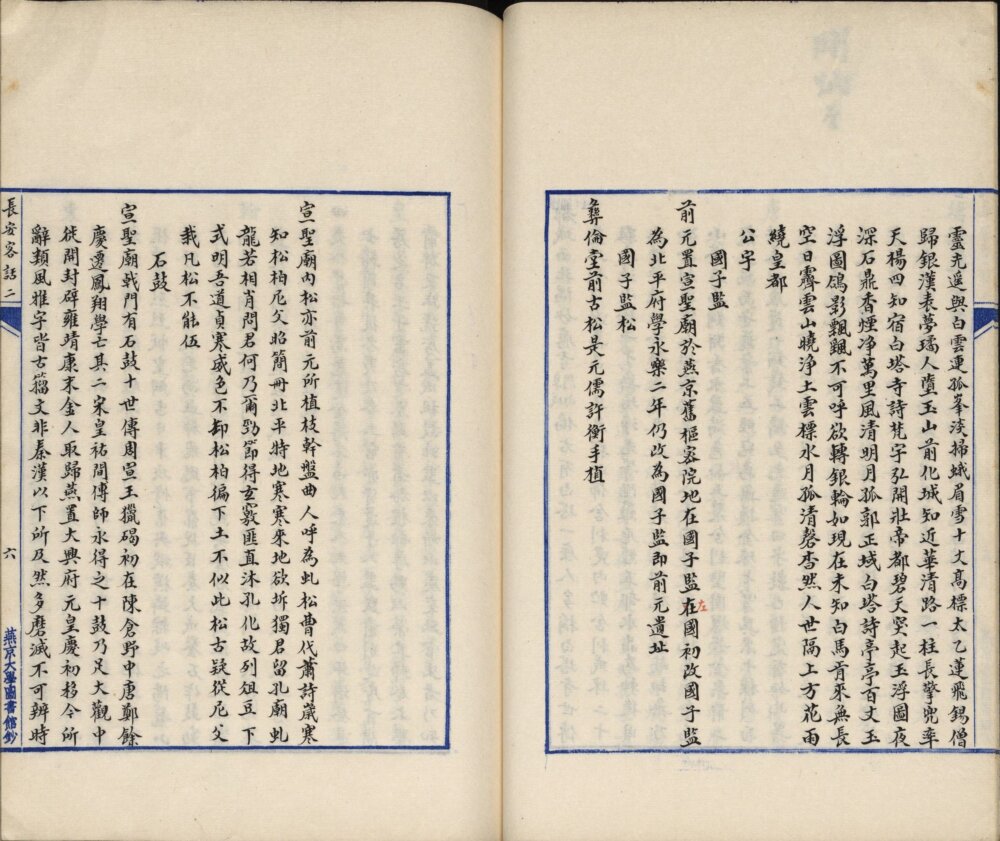 靈光遥與白雲連孤峯淡掃蛾眉雪十丈髙標太乙蓮飛錫僧
歸銀漢表夢璚人墮玉山前化城知近華清路一柱長擎兜率
天楊四知宿白塔寺詩梵宇弘開壯帝都碧天突起玉浮圖夜
深石鼎香煙净萬里風清明月孤郭正域白塔詩亭亭百丈玉
浮圖鴿影飄飄不可呼欲轉銀輪如現在未知白馬肯來無長
空日霽雲山曉净土雲標水月孤清磬杳然人世隔上方花雨
繞皇都
公宇
國子監
前元置宣聖廟於燕京舊樞密院地在國子監在國初改國子監
左
為北平府學永樂二年仍改為國子監即前元遺址
國子監松
彝倫堂前古松是元儒許衡手植
宣聖廟内松亦前元所植枝幹盤曲人呼為虬松曹代蕭詩歳寒
知松柏尼父昭簡冊北平特地寒寒來地欲坼獨君留孔廟虬
龍若相肖問君何乃爾勁節得玄竅匪直沐孔化故列俎豆下
式明吾道貞寒威色不却松柏徧下土不似此松古疑從尼父
栽凡松不能伍
石鼓
宣聖廟戟門有石鼓十世傳周宣王獵碣初在陳倉野中唐鄭餘
慶遷鳳翔學亡其二宋皇祐間傅師永得之十鼓乃足大觀中
徙開封碑雍靖康末金人取歸燕置大興府元皇慶初移今所
辭類風雅字皆古籕文非秦漢以下所及然多磨滅不可辨時
長安客話二
六
燕京大學圖書館鈔